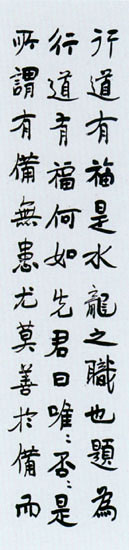 行道有福是水龍之職也題為
行道有福何如先君曰唯〻否〻是
所謂有備無患尤莫善於備而